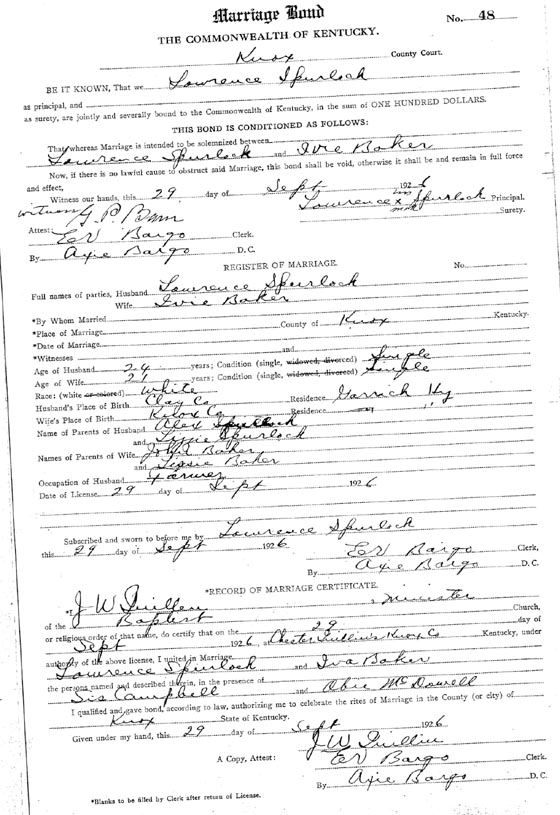 Marriage Bond
No. 48
THE COMMONWEALTH OF KENTUCKY.
Knox County Court.
BE IT KNOWN, That we Lawrence Spurlock
as principal, and
as surety, are jointly and severally bound to the Commonwealth of Kentucky, in the sum of ONE HUNDRED DOLLARS.
THIS BOND IS CONDITIONED AS FOLLOWS:
That whereas Marriage is intended to be solemnized between
Lawrence Spurlock and Ivie Baker
Now, if there is no lawful cause to obstruct said Marriage, this bond shall be void, otherwise it shall be and remain in full force
and effect,
Witness our hands, this 29 day of Sept 1926
witness
his
Lawrence x Spurlock Principal.
mark
Surety.
Attest: EV Bargo Clerk.
By Axie Bargo D. C.
REGISTER OF MARRIAGE.
No.
Full names of parties, Husband Lawrence Spurlock
Wife Ivie Baker
*By Whom Married
*Place of Marriage County of Knox Kentucky.
*Date of Marriage
*Witnesses and
Age of Husband 24 years; Condition (single, widowed, divorced) Single
Age of Wife 21 years; Condition (single, widowed, divorced) Single
Race: (white or colored) White
Husband's Place of Birth Clay Co Residence Garrich Ky
Wife's Place of Birth Knox Co Residence " "
Name of Parents of Husband Alex Spurlock
and Spurlock
Names of Parents of Wife John Baker
and Baker
Occupation of Husband Farmer
Date of License 29 day of Sept 1926
Subscribed and sworn to before me by Lawrence Spurlock
this 29 day of Sept 1926
EV Bargo Clerk,
By Axie Bargo D. C.
*RECORD OF MARRIAGE CERTIFICATE.
*I, J W Quillen , a minister
of the Baptist Church,
or religious order of that name, do certify that on the 29 day of
Sept 1926, at Chester Quillins Knox Co Kentucky, under
authority of the above license, I united in Marriage
Lawrence Spurlock and Iva Baker
the persons named and described therein, in the presence of
Sis Campbell and Obie McDowell
I qualified and gave bond, according to law, authorizing me to celebrate the rites of Marriage in the County (or city) of
Knox State of Kentucky.
Given under my hand, this 29 day of Sept 1926
J W Quillin
A Copy, Attest: EV Bargo Clerk.
By Axie Bargo D. C.
*Blanks to be filled by Clerk after return of License.